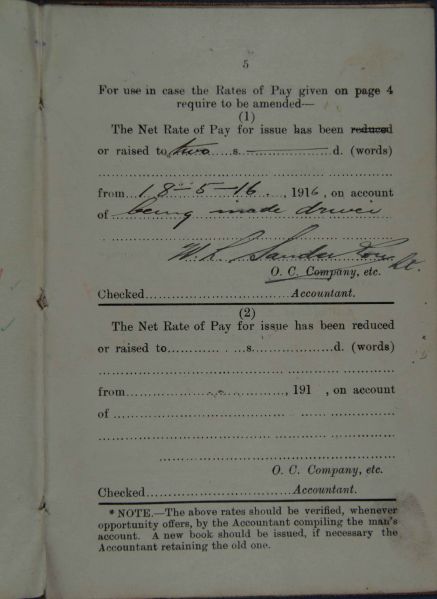 5
For use in case the Rates of Pay given on page 4
require to be amended—
(1)
The Net Rate of Pay for issue has been reduced
or raised to two s. ——— d. (words)
from 18-5-16, 1916, on account
of being made driver
W L Sanderson Lt.
O. C. Company, etc.
Checked Accountant.
(2)
The Net Rate of Pay for issue has been reduced
or raised to s. d. (words)
from , 191 , on account
of
O. C. Company, etc.
Checked Accountant.
* NOTE.—The above rates should be verified, whenever
opportunity offers, by the Accountant compiling the man's
account. A new book should be issued, if necessary the
Accountant retaining the old one.